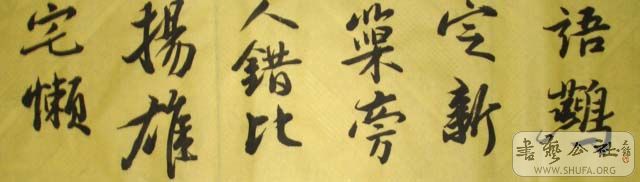 語鷰
定新
巢旁
人錯比
揚雄
宅懶
書藝公社
WWW.SHUFA.ORG